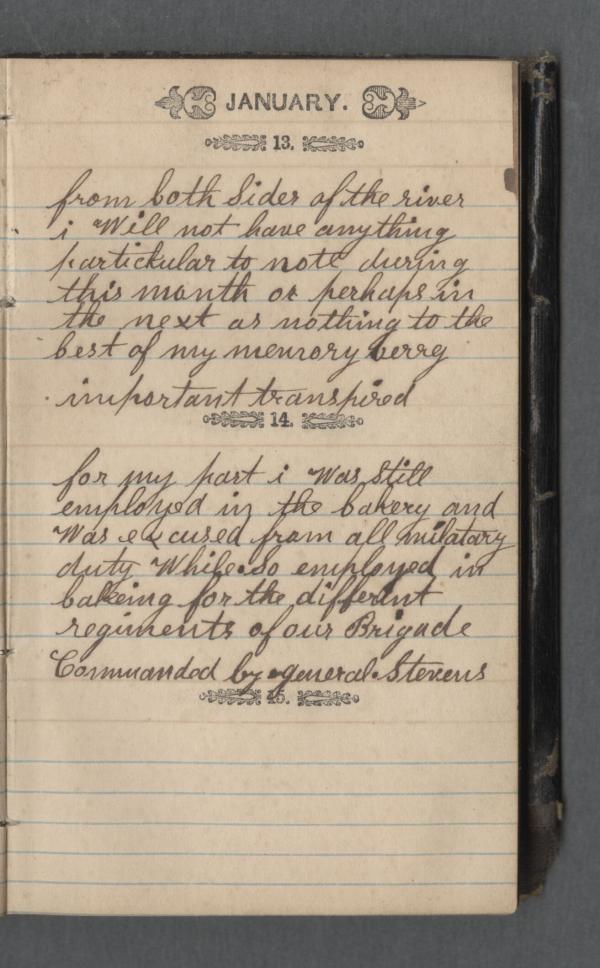 JANUARY.
13.
from both Sides of the river
i Will not have anything
partickular to note during
this month or perhaps in
the next as nothing to the
best of my memory verry
important transpired
14.
for my part i Was Still
employed in the bakery and
Was excused from all milatary
duty While so employed in
bakeing for the different
regiments of our Brigade
Commanded by general Stevens
15.